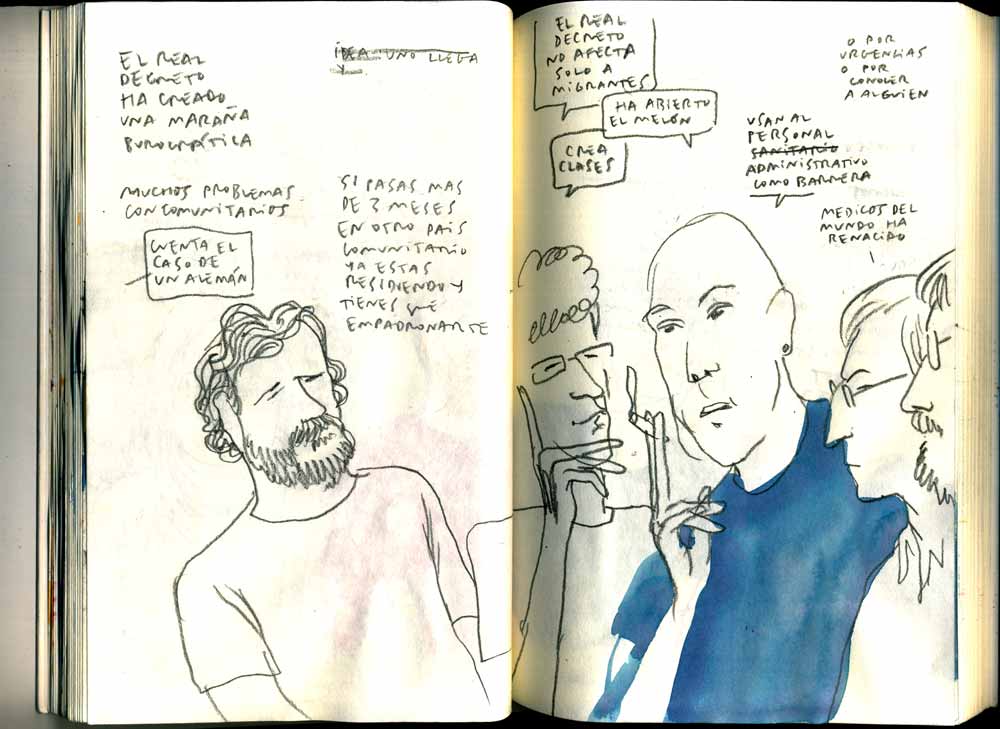 EL REAL
DECRETO
HA CREADO
UNA MARAÑA
BUROCRÁTICA
MUCHOS PROBLEMAS
CON COMUNITARIOS
CUENTA EL
CASO DE
UN ALEMÁN
IDEA UNO LLEGA
Y
SI PASAS MAS
DE 3 MESES
EN OTRO PAIS
COMUNITARIO
YA ESTAS
RESIDIENDO Y
TIENES QUE
EMPADRONARTE
EL REAL
DECRETO
NO AFECTA
SOLO A
MIGRANTES
HA ABIERTO
EL MELÓN
CREA
CLASES
O POR
URGENCIAS
O POR
CONOCER
A ALGUIEN
USAN AL
PERSONAL
SANITARIO
ADMINISTRATIVO
COMO BARRERA
MEDICOS DEL
MUNDO HA
RENACIDO